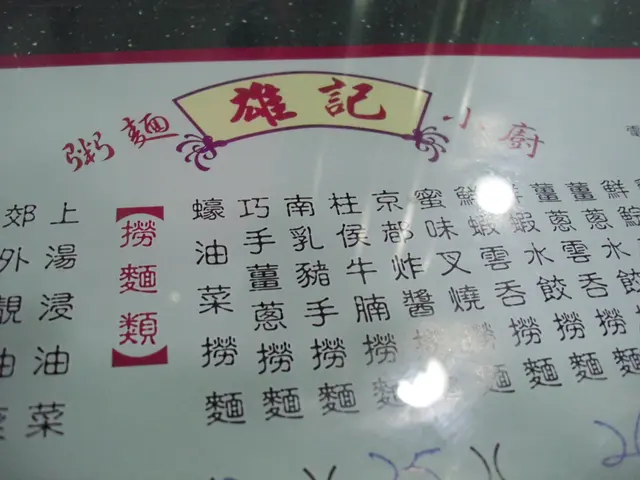 粥麵 雄記 小廚
上湯浸油菜
郊外靚油菜
【撈麵類】
蠔油菜撈麵
巧手薑蔥撈麵
南乳豬手撈麵
柱侯牛腩撈麵
京都炸醬撈麵
蜜味叉燒撈麵
鮮蝦雲吞撈麵
鮮蝦水餃撈麵
薑蔥雲吞撈麵
薑蔥水餃撈麵
25